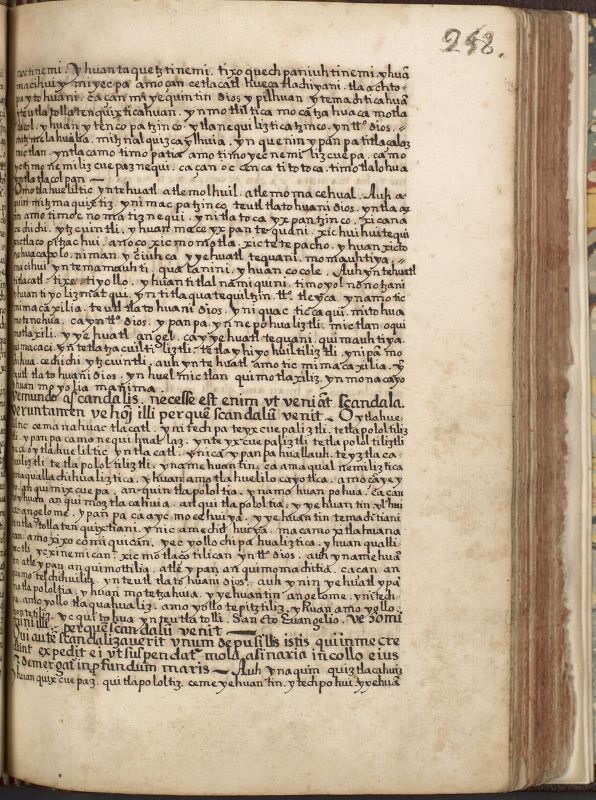 248.
nactinemi. yhuan taquetztinemi. tixo quech paniuhtinemi. yhuā
macihui y miyecpa amo can cetlacatl hueca tlachiyani. tlaachto
pa ytohuani. ca çan mi yequintin dios ypilhuan ytemachticahuā
yteutlatollatenquixticahuan. yn motlistica mo catzahuaca motla
tlacol. yhuan ytenco patzinco. ytlanequiliztica tzinco. yn tto dios.
mitzmelahualia. mitznalquizcaylhuia. yn quenin ypan patitlacaloz
mictlan. yntlacamo timopatia amo timoyecnemilizcuepa. ca mo
yectimonemilizcuepaz nequi. ca çan oc cenca titotoca. timotlalohua
yn tlatlacolpan —
Omotlahueliltic yn tehuatl atle molhuil. atle momacehual. Auh a
quin mitzmaquixtiz. yn imacpatzinco teutl tlatohuani dios. yntla ax
can amo timocnomatiznequi. yn itlatoca yxpantzinco. xicana
cechichi. ytzcuintli. yhuan maceyxpan tequani. xichuihuitequi
mictlacopitzachui. anoço xicmomotla. xictetepacho. yhuan xicto
niman yciuhca yyehuatl tequani. momauhtiya.
macihui yntemamauhti. qualanini. yhuan cocole. Auh yn tehuatl
titlacatl. tixe. tiyollo. yhuan titlalnamiquini. timoyolnonotzani
tihuantiyolizmatqui. yn titlaquatequiltzin tto. tleyca. ynamo tic
mimacaxilia. teutl tlatohuani dios. yn iquac ticcaqui. mitohua
motenehua. ca yn tto dios. ypanpa. yn nepohualiztli. mictlan oqui
motlaxili. yyehuatl angel. ca yyehuatl tequani. quimauhtiya.
quimacaci. yn tetlatzacuiltiliztli. tetlayhiyohuiltiliztli. yn ipāmo
chihua. cechichi ytzcuintli. auh yn tehuatl amo ticmimacaxilia. y
teutl tlatohuani dios. yn huel mictlan quimotlaxiliz. yn monacayo
yhuan moyolia manima.
Ve mundo a scandalis. necesse est enim vt veniāt scandala.
Veruntamen ve hoi illi per quē scandalū venit. — O ytlahue
liltic cemanahuac tlacatl. yn itechpa teyxcuepaliztli. tetlapololtiliz
tli. ypanpa camo nequi hualaz. ynteyxcuepaliztli tetlapololtiliztli
yece oytlahueliltic yn tlacatl. yn ica ypanpa huallauh. teyztlaca
huiliztli tetlapololtiliztli. yn amehuantin. ca anaqualnemiliztica
anaquallachihualiztica. yhuan amotlahuelilocayotica. amo ca yey
o anquimixcuepa. an-quintlapololtia. ynamo huan pohua. ca çan
no yhuan anquimoztlacahuia. anquitlapololtia. yyehuantin ylhui
cac angelome. ypanpa ca ayc mocehuiya. yyehuantin temachtiani
teutlatollatenquixtiani. yn ic amechilhuiya. macamo xitlahuana
can. amo xixocomiquican. yec yollochipahualiztica. yhuan qualli
yectli ycxinemican. xicmotlaçotilican yn tto dios. auh yn amehuan
an atle ypan anquimottilia. atle ypan anquimomachitia. ca çan an
quimotelchihuilia yn teutl tlatohuani dios. auh yn in yehuatl ypā
motlapololtia. yhuan motetzahuia. yyehuantin angelome. yn itech
pa. amo yollotlaquahualiz. amo yollotepitztiliz. yhuan amo yollo
yoptetiliz. yc quitohua yn teutlatolli. Sancto Euangelio. ve homi
hini illi: per quē scandalū venit —
Qui autē scandalizauerit vnum de pusillis istis qui in me cre
dunt expedit ei vt suspendat mola asinaria in collo eius
& demergat in pfundum maris — Auh yn aquin quiztlacahuiz
yhuan quixcuepaz. quitlapololtiz. ceme yehuantin. ytechpohui yyehuā